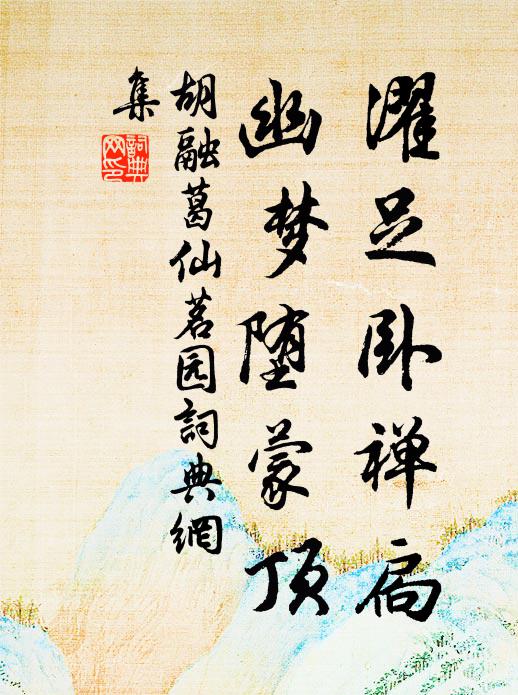 濯足卧禅扃
幽梦堕蒙顶
胡融葛仙茗园詞典網
集
詞典網印